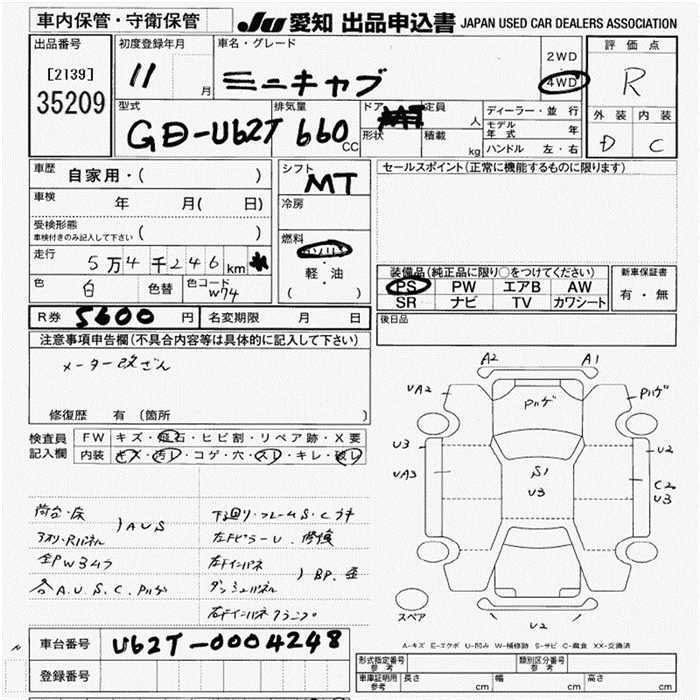 車内保管・守衛保管
JU 愛知 出品申込書 JAPAN USED CAR DEALERS ASSOCIATION
出品番号
[2139]
35209
初度登録年月
11 月
車名・グレード
ミニキャブ
2WD
・
4WD
評価点
R
外装 内装
D C
型式
GD-U62T
排気量
660 CC
ドア
形状
定員
人
積載
kg
ディーラー・並行
モデル
年式 年
ハンドル 左・右
車歴 自家用・( )
車検 年 月( 日)
受検形態
車検付きのみ記入して下さい ( )
走行 5万4千246km
色 白 色替 色コード W74
シフト
MT
冷房
燃料
ガソリン
・
軽・油
( )
セールスポイント(正常に機能するものに限ります)
装備品(純正品に限り○をつけてください)
PS PW エアB AW
SR ナビ TV カワシート
新車保証書
有・無
R券 5600 円 名変期限 月 日
後日品
注意事項申告欄(不具合内容等は具体的に記入して下さい)
メーター改ざん
修復歴 有 (箇所 )
検査員
記入欄
FW キズ・飛石・ヒビ割・リペア跡・X要
内装 キズ・汚レ・コゲ・穴・スレ・キレ・破レ
荷台・床
アオリ・Rパネル
) A U S
A.U.S.C.
下廻り・フレームS・C
左Fピラー U
左Fインパネ
ダッシュパネル
) BP.
右Fインパネ
A2 A1
UA2
U3
UA3
Pハゲ
Pハゲ
S1
U3
U2
C2
U3
U2
スペア
A-キズ E-エクボ U-凹み W-補修跡 S-サビ C-腐食 XX-交換済
車台番号 U62T-0004248
登録番号
形式指定番号
参考
類別区分番号
参考
車庫証明用
参考
長さ cm 幅 cm 高さ cm